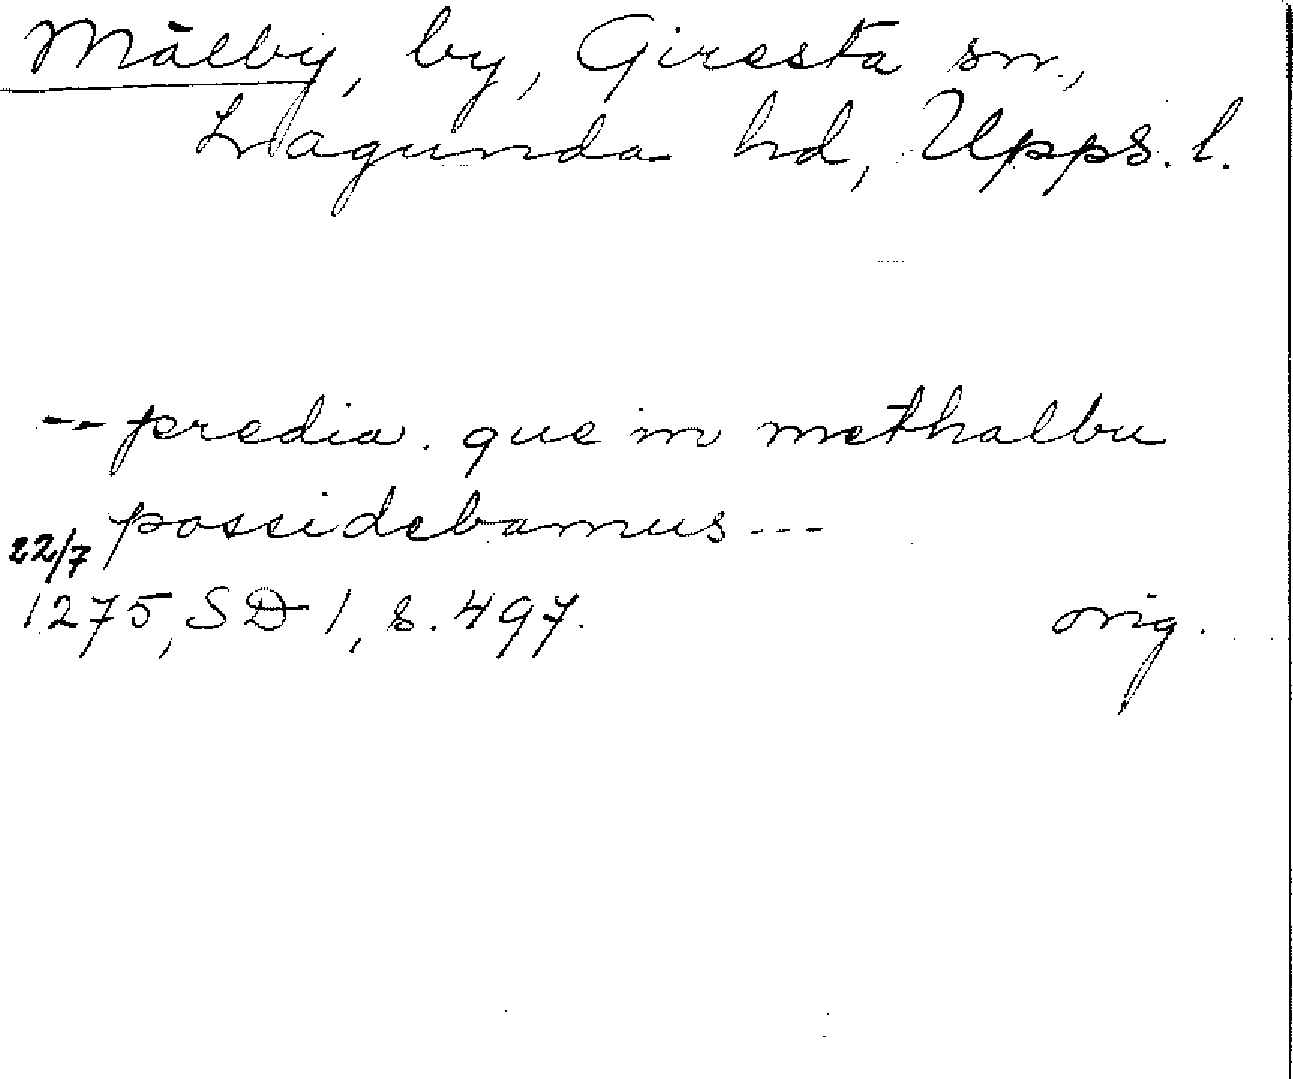 Målby, by, Giresta sn.,
Lagunda hd, Upps. l.
-- predia. que in methalbu
possidebamus ---
22/7
1275, SD 1, s. 497.
orig.